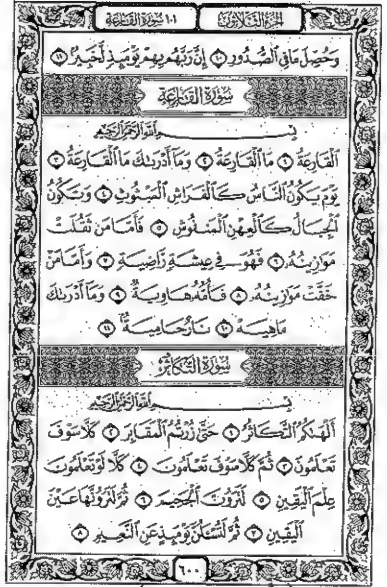 الجزء الثلاثون ١٠١ سورة القارعة
وَحُصِّلَ مَا فِي ٱلصُّدُورِ ١٠ إِنَّ رَبَّهُم بِهِمْ يَوْمَئِذٍ لَّخَبِيرٌۢ ١١
سُورَةُ القَارِعَةِ
بِسْمِ ٱللَّهِ ٱلرَّحْمَٰنِ ٱلرَّحِيمِ
ٱلْقَارِعَةُ ١ مَا ٱلْقَارِعَةُ ٢ وَمَآ أَدْرَىٰكَ مَا ٱلْقَارِعَةُ ٣
يَوْمَ يَكُونُ ٱلنَّاسُ كَٱلْفَرَاشِ ٱلْمَبْثُوثِ ٤ وَتَكُونُ
ٱلْجِبَالُ كَٱلْعِهْنِ ٱلْمَنفُوشِ ٥ فَأَمَّا مَن ثَقُلَتْ
مَوَٰزِينُهُۥ ٦ فَهُوَ فِى عِيشَةٍ رَّاضِيَةٍ ٧ وَأَمَّا مَنْ
خَفَّتْ مَوَٰزِينُهُۥ ٨ فَأُمُّهُۥ هَاوِيَةٌ ٩ وَمَآ أَدْرَىٰكَ
مَا هِيَهْ ١٠ نَارٌ حَامِيَةٌۢ ١١
سُورَةُ التَّكَاثُرِ
بِسْمِ ٱللَّهِ ٱلرَّحْمَٰنِ ٱلرَّحِيمِ
أَلْهَىٰكُمُ ٱلتَّكَاثُرُ ١ حَتَّىٰ زُرْتُمُ ٱلْمَقَابِرَ ٢ كَلَّا سَوْفَ
تَعْلَمُونَ ٣ ثُمَّ كَلَّا سَوْفَ تَعْلَمُونَ ٤ كَلَّا لَوْ تَعْلَمُونَ
عِلْمَ ٱلْيَقِينِ ٥ لَتَرَوُنَّ ٱلْجَحِيمَ ٦ ثُمَّ لَتَرَوُنَّهَا عَيْنَ
ٱلْيَقِينِ ٧ ثُمَّ لَتُسْـَٔلُنَّ يَوْمَئِذٍ عَنِ ٱلنَّعِيمِ ٨
٦٠٠